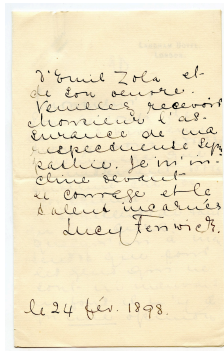 d'Emil Zola et
de son oeuvre.
Veuillez recevoir
Monsieur l'as-
surance de ma
respectueuse sym
pathie. Je m'in-
cline devant
le courage et le
talent incarnés
Lucy Fenwick.
le 24 fév. 1898.